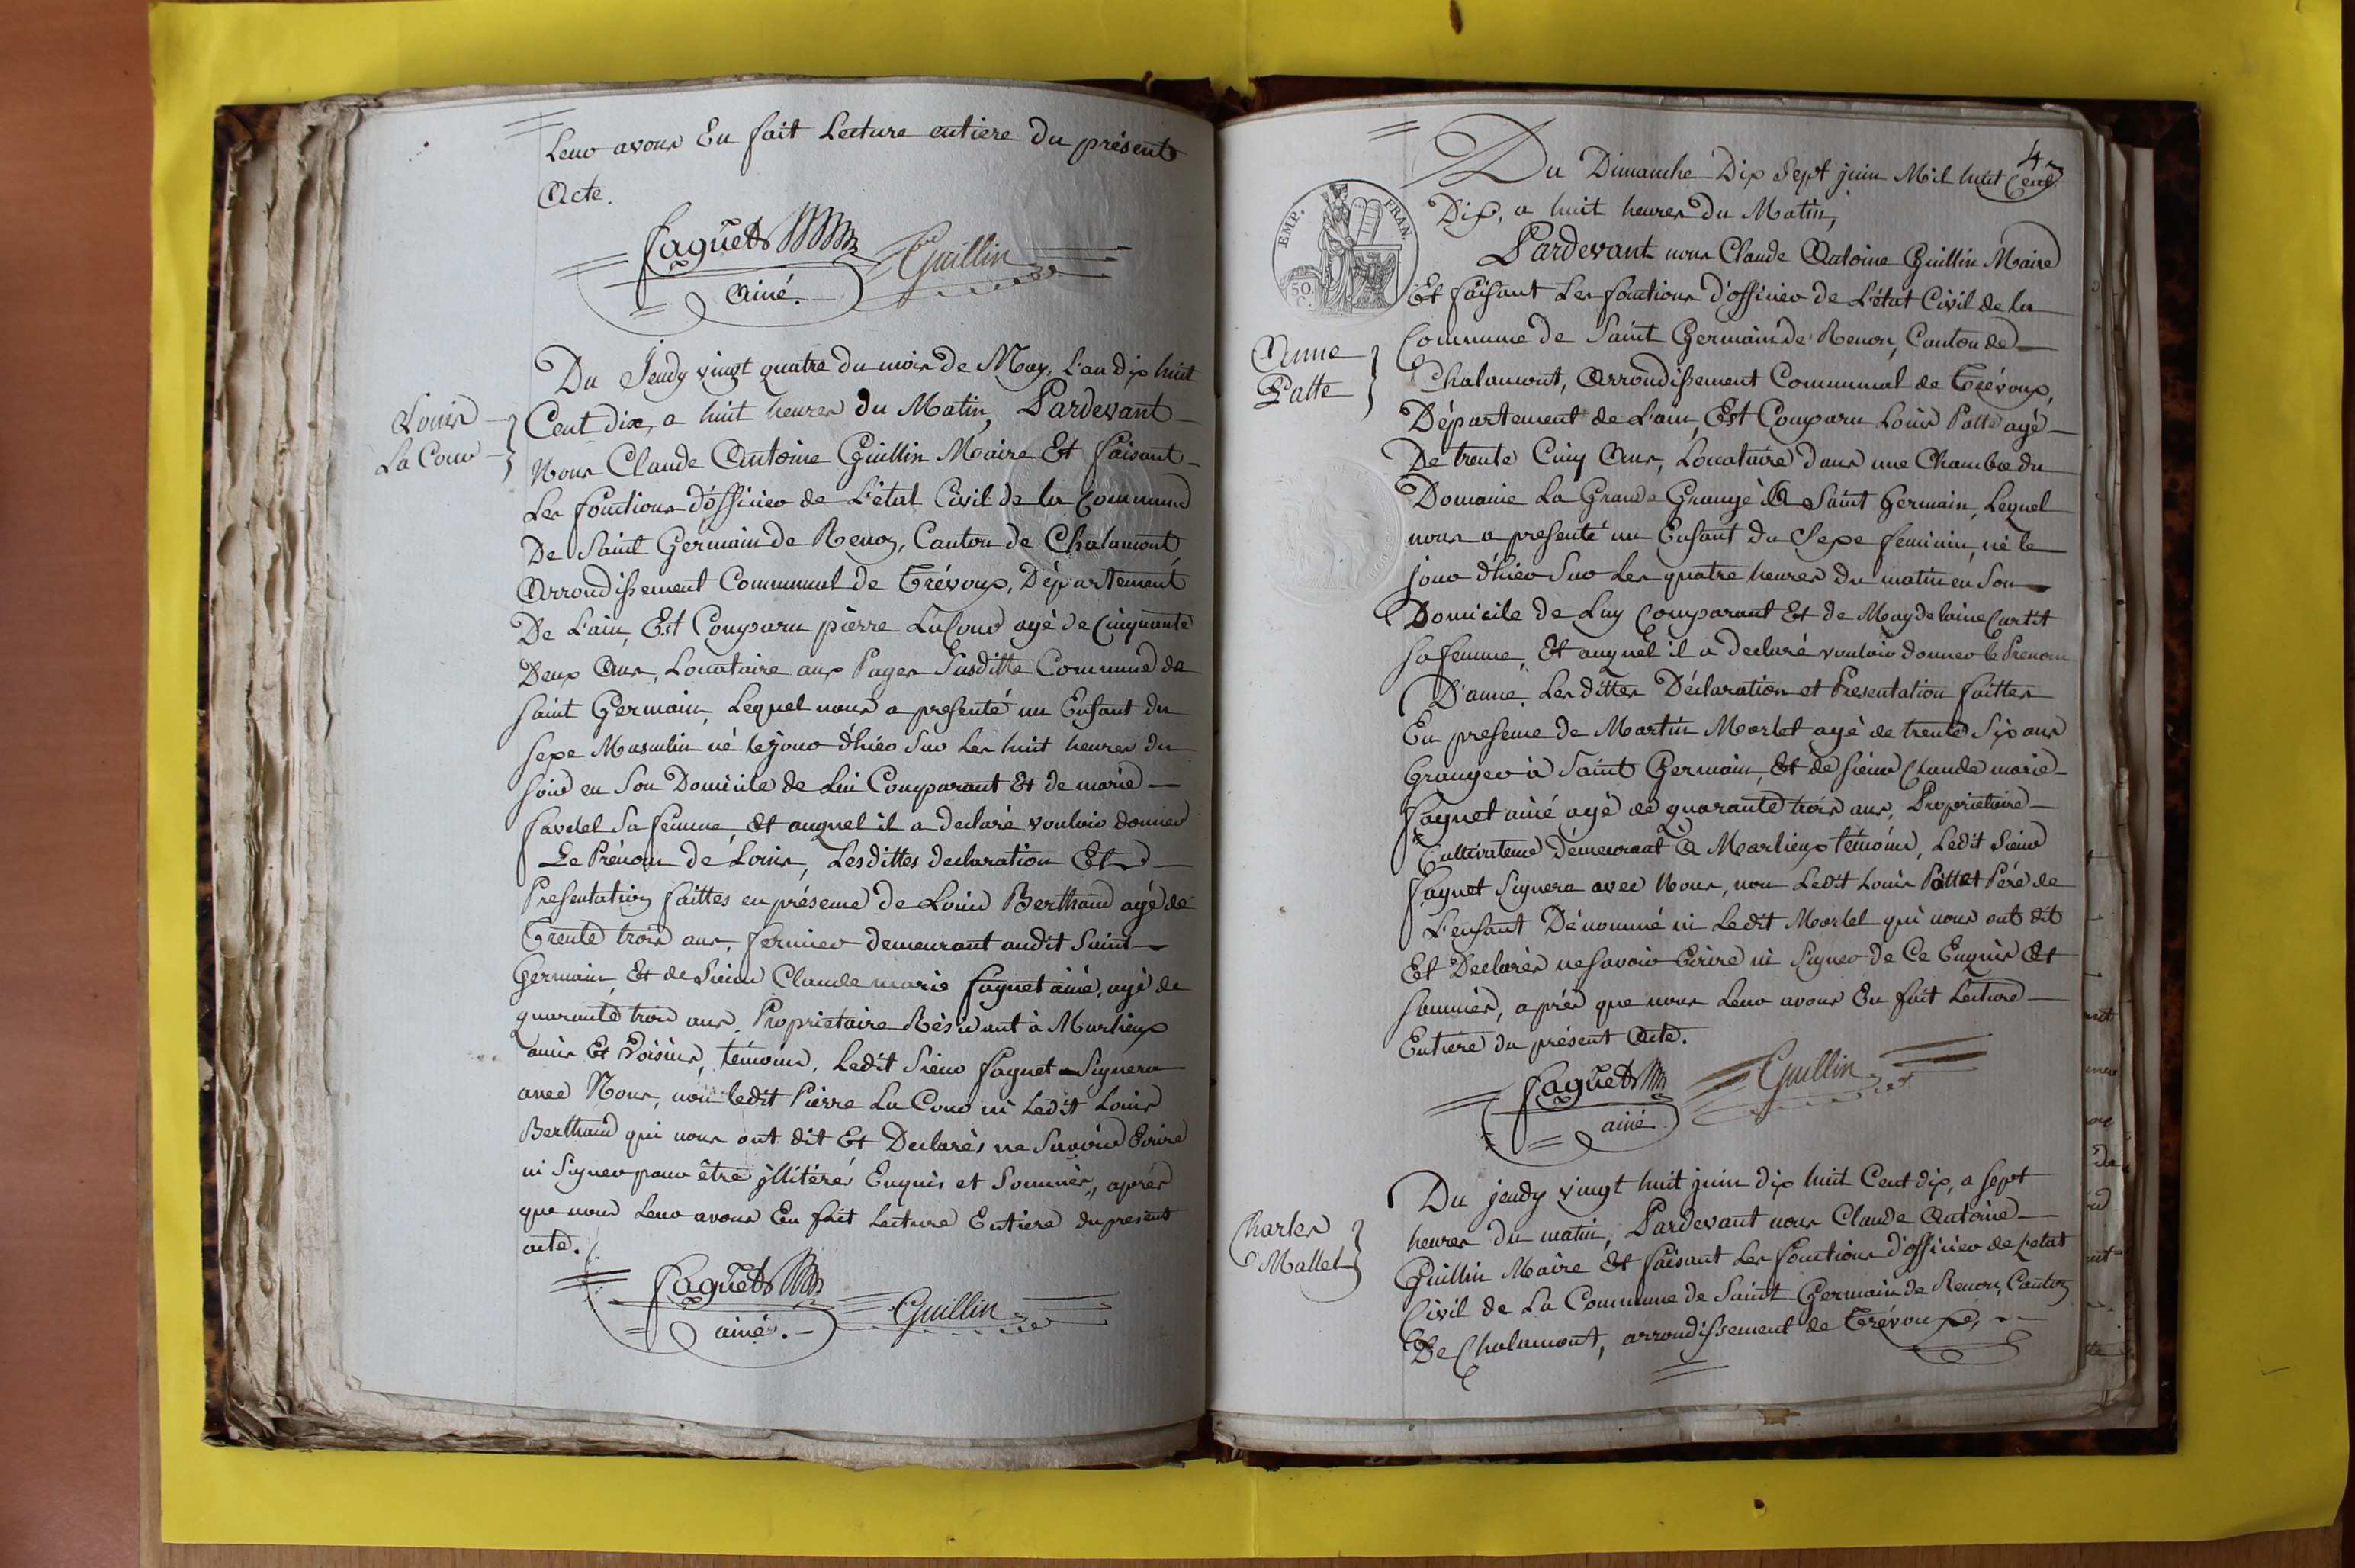 Leur avons En fait Lecture entiere Du présent
Acte.
faguet Guillin
Ainé.
Du Jeudy vingt quatre du mois de May, L'an dix huit
Louis
Cent dix, a huit heures du Matin, Pardevant
La Cour
Nous Claude Antoine Guillin Maire Et faisant
Les fonctions d'officier de L'état Civil de la Commune
De Saint Germain de Renon, Canton de Chalamont,
Arrondissement Communal de Trévoux, Département
De L'ain, Est Comparu pierre LaCour agé de Cinquante
Deux Ans, Locataire aux Pages Susditte Commune de
Saint Germain, Lequel nous a presenté un Enfant du
sexe Masculin né le jour d'hier Sur Les huit heures du
soir en Son Domicile de Lui Comparant Et de marie
favelel Sa femme, Et auquel il a declaré vouloir donner
Le Prénom de Louis, Lesdittes declaration Et
Presentation faittes en présence de Louis Berthaud agé de
Trente trois ans, fermier demeurant audit Saint
Germain, Et de Sieur Claude marie faguet ainé, agé de
quarante trois ans, Proprietaire Résidant à Marlieux
amis Et Voisins, témoins, Ledit Sieur faguet Signera
avec Nous, non ledit Pierre La Cour ni Ledit Louis
Berthaud qui nous ont dit Et Declarés ne Savoir Ecrire
ni Signer pour être jllitérés Enquis et Sommés, après
que nous Leur avons En fait Lecture Entiere du present
acte.
faguet Guillin
ainé.
4
Du Dimanche Dix Sept juin Mil huit Cent
Dix, a huit heures du Matin,
EMP. FRAN.
50. C.
Pardevant nous Claude Antoine Guillin Maire
Et faisant Les fonctions d'officier de L'état Civil de la
Commune de Saint Germain de Renon, Canton de
Anne
Patte
Chalamont, Arrondissement Communal de Trévoux,
Département de L'ain, Est Comparu Louis Patte agé
De trente Cinq Ans, Locataire dans une Chambre du
Domaine La Grande Grange A Saint Germain, Lequel
nous a presenté un Enfant du Sexe feminin, né le
jour d'hier Sur Les quatre heures du matin en Son
Domicile de Luy Comparant Et de Magdelaine Curtit
sa femme, Et auquel il a Declaré vouloir donner le Prenom
D'anne, Lesdittes Déclaration et Presentation faittes
En presence de Martin Morlet agé de trente Six ans
Granger à Saint Germain, Et de sieur Claude marie
faguet ainé agé de quarante trois ans, Proprietaire
Cultivateur demeurant A Marlieux témoins, Ledit Sieur
faguet Signera avec Nous, non Ledit Louis Patte Pére de
L'enfant Dénommé ni Ledit Morlet qui nous ont dit
Et Declarés ne Savoir Ecrire ni Signer de Ce Enquis Et
Sommés, après que nous Leur avons En fait Lecture
Entiere du présent Acte.
faguet Guillin
ainé
Du jeudy vingt huit juin dix huit Cent dix, a sept
heures du matin, Pardevant nous Claude Antoine
Charles
Mallet
Guillin Maire Et faisant Les fonctions d'officier de L'etat
Civil de La Commune de Saint Germain de Renon, Canton
De Chalamont, arrondissement de Trévoux,